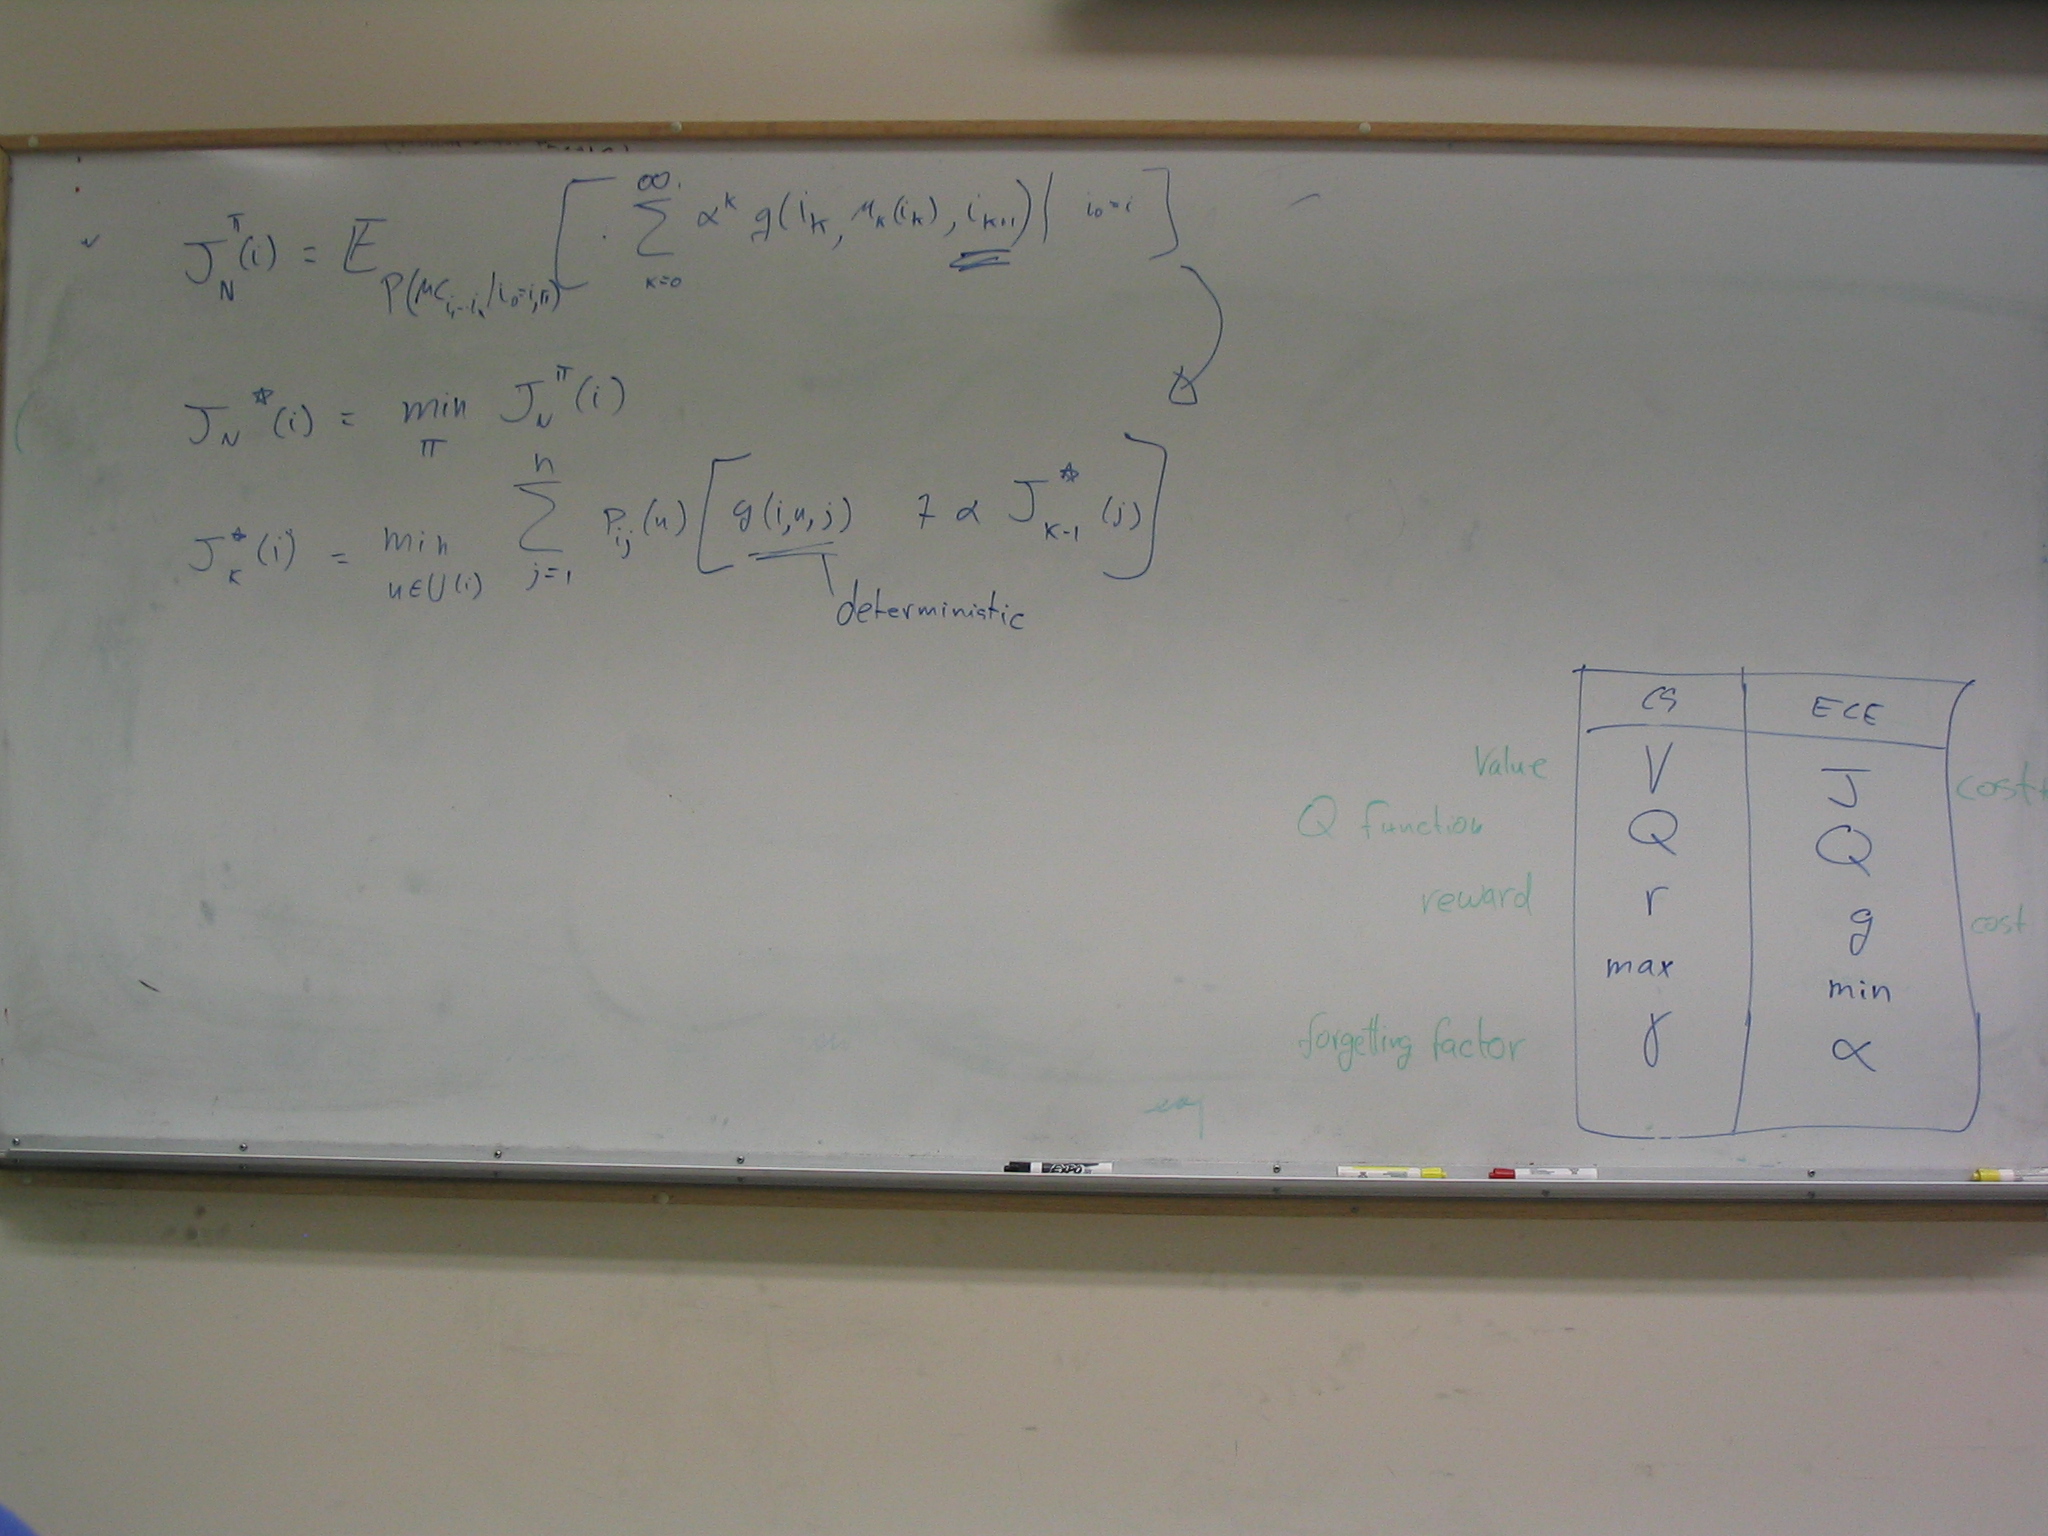 J_N^π(i) = E_{P(MC_{i_1–i_N}|i_0=i,π)} [ ∑_{k=0}^{∞} α^k g(i_k, μ_k(i_k), i_{k+1}) | i_0=i ]
J_N^*(i) = min_π J_N^π(i)
J_k^*(i) = min_{u∈U(i)} ∑_{j=1}^{n} P_{ij}(u) [ g(i,u,j) + α J_{k-1}^*(j) ]
deterministic
CS ECE
Value V J cost
Q function Q Q
reward r g cost
max min
forgetting factor γ α
EXPO